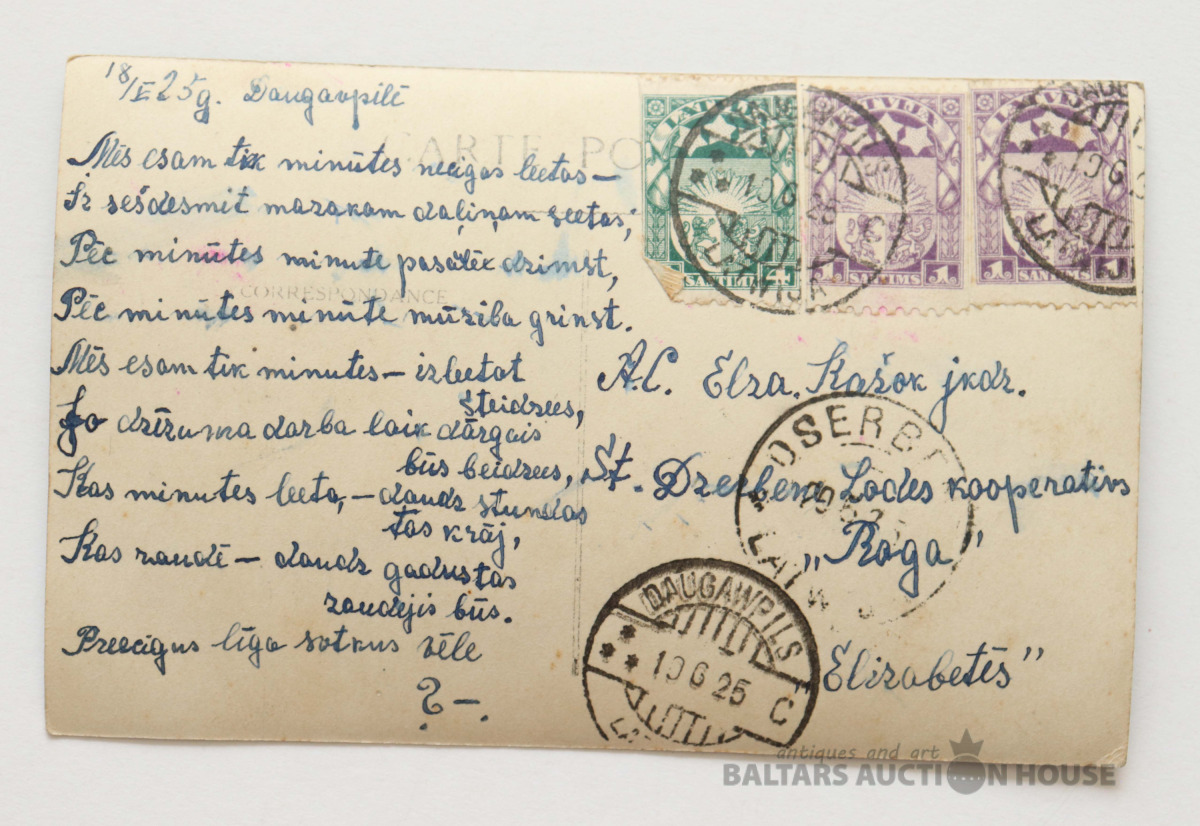 18/VI 25g. Daugavpilī
Mēs esam tik minūtes neeigas leetas—
Ir sešdesmit mazakam daļiņam
Pēc minūtes minute dzimst,
Pēc minūtes minute mūžiba grimst.
Mēs esam tik minutes— izleetat
steidzees,
Jo dzīruma darba laik dārgais
būs beidzees,
Kas minutes leeto,— daudz stundas
tas krāj,
Kas zaudē— daudz gadus tas
zaudejis būs.
Preecigus līgo svētkus vēle
?—.
CARTE PO
CORRESPONDANCE
LATVIJA
4 SANTIMI 4
LATVIJA
1 SANTIMS 1
LATVIJA
1 SANTIMS 1
A.C. Elza. Kažok jkdz.
St. Dzerbene Lodes kooperativs
„Roga"
Elizabetēs"
DAUGAWPILS
19 6 25
C
antiques and art
BALTARS AUCTION HOUSE